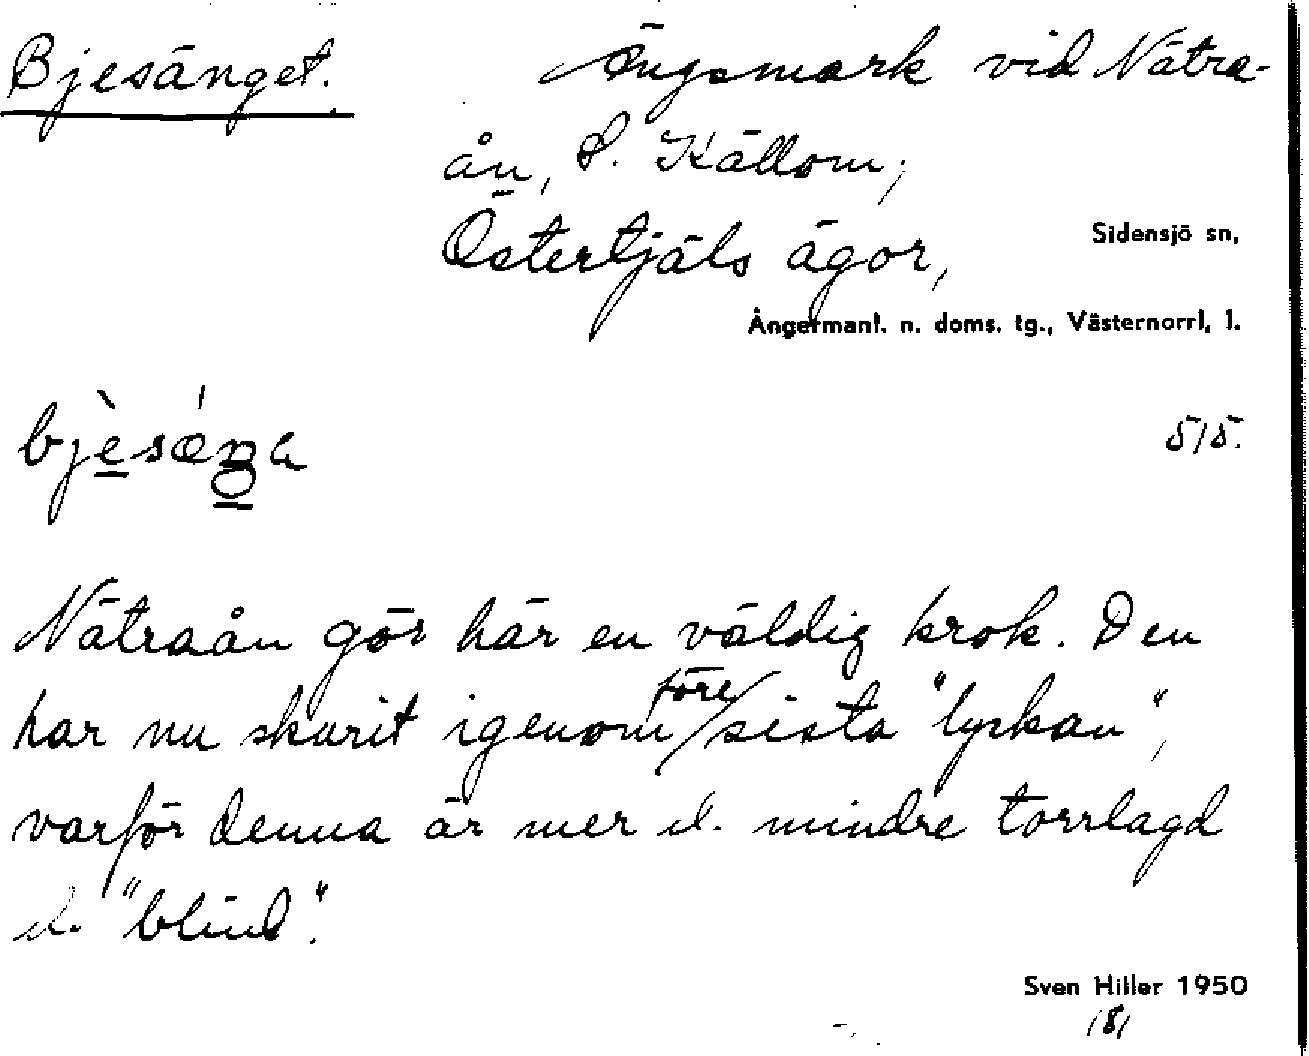 Bjesänget. Ängsmark vid Nätra-
ån, S. Källom,
Östertjäls ägor,
Sidensjö sn,
Ångermanl. n. doms. tg., Västernorrl. l.
515.
Nätraån gör här en väldig krok. Den
har nu skurit igenom före sista "lyckan",
varför denna är mer el. mindre torrlagd
el. "blind".
Sven Hiller 1950
181